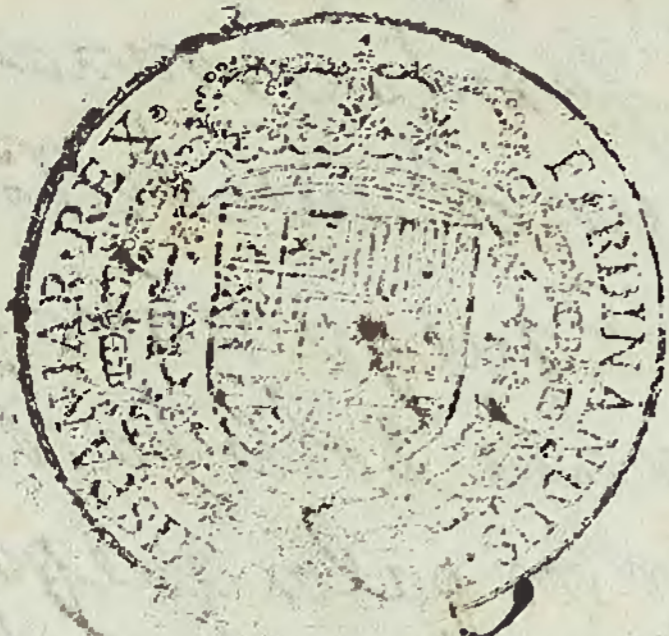 FERDINANDUS
HISPANIAR·REX·